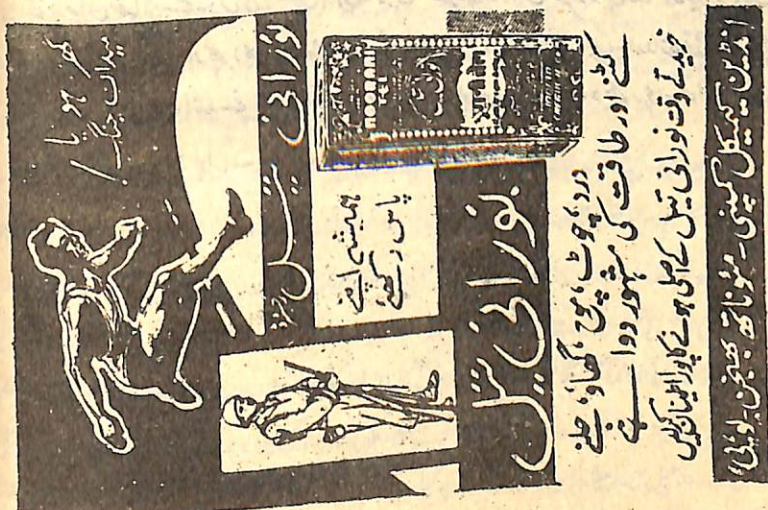 گھر ہو یا
میدانِ جنگ!
نورانی تیل
ہمیشہ اپنے
پاس رکھئے
NOORANI
TEL
نورانی تیل
नूरानी तेल
نورانی تیل
درد، چوٹ، موچ، گھاؤ، جلنے
کٹنے اور طاقت کی مشہور دوا ہے
خریدتے وقت نورانی تیل کے اصلی ہونے کا پورا اطمینان کرلیں
انڈین کیمیکل کمپنی۔ مئو ناتھ بھنجن۔ یوپی